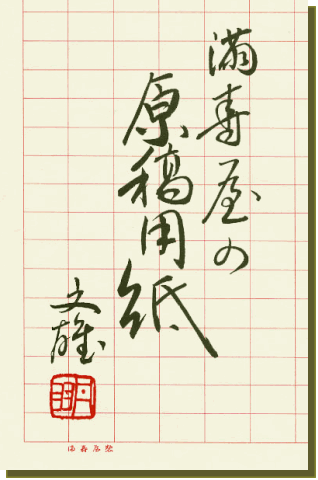 満寿屋の
原稿用紙
文雄
満寿屋製